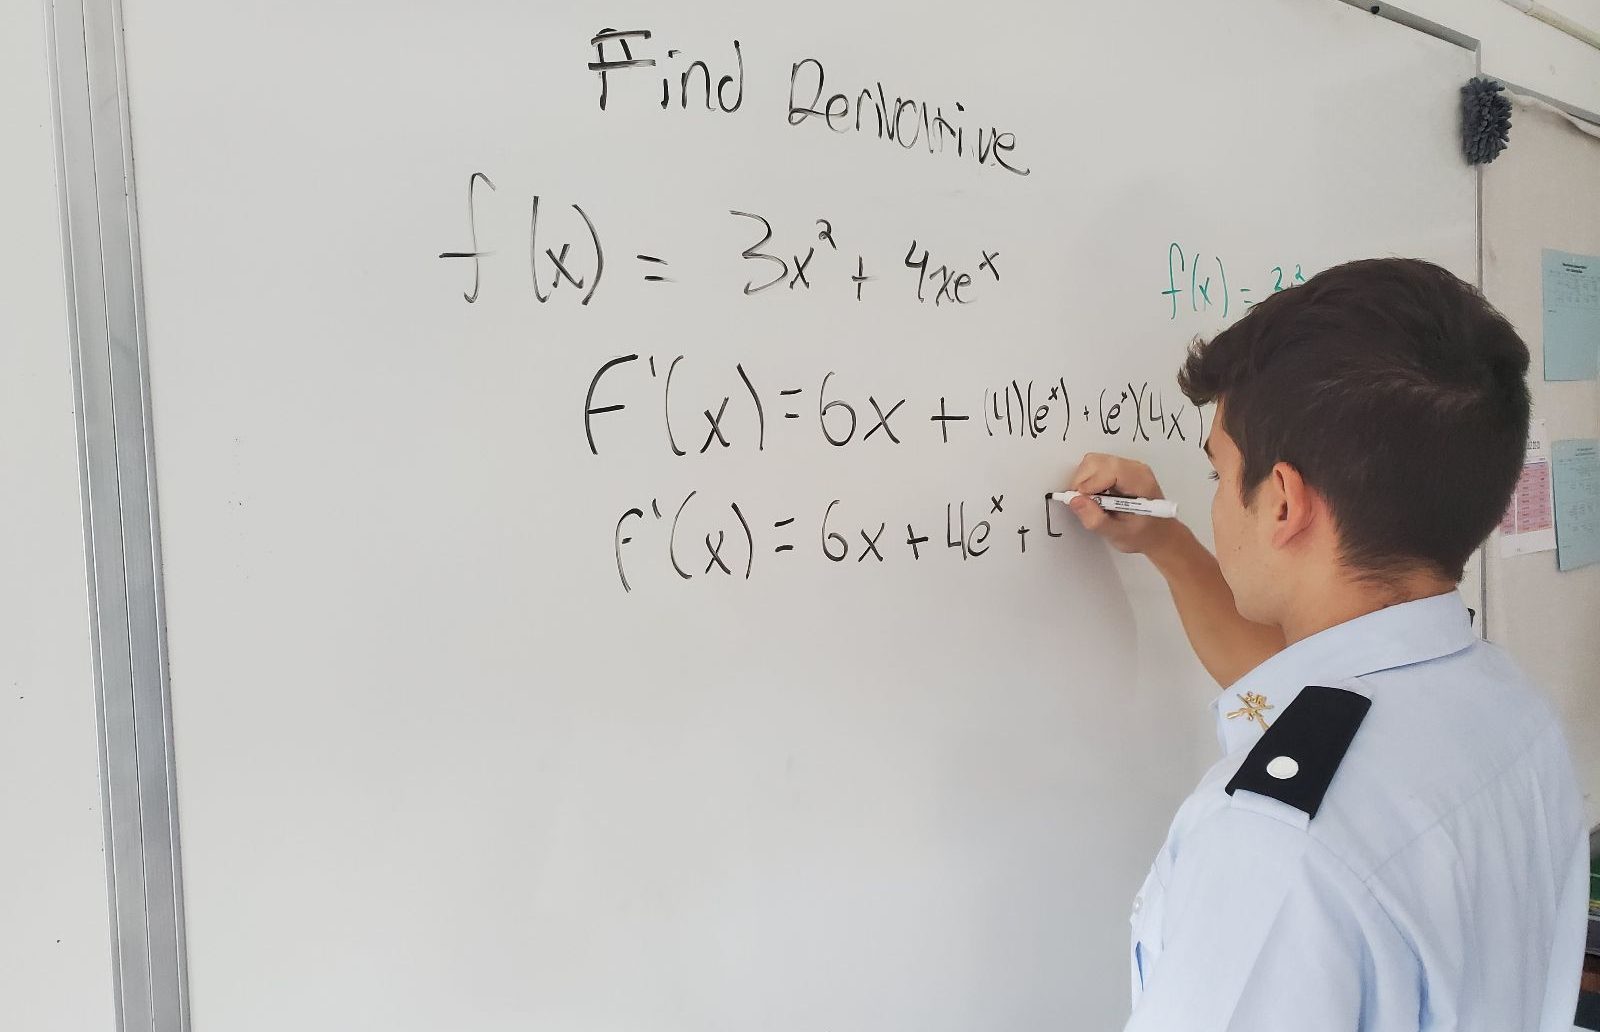 Find Derivative
f(x) = 3x² + 4xeˣ
f(x) =
F'(x) = 6x + (4)(eˣ) + (eˣ)(4x)
f'(x) = 6x + 4eˣ +